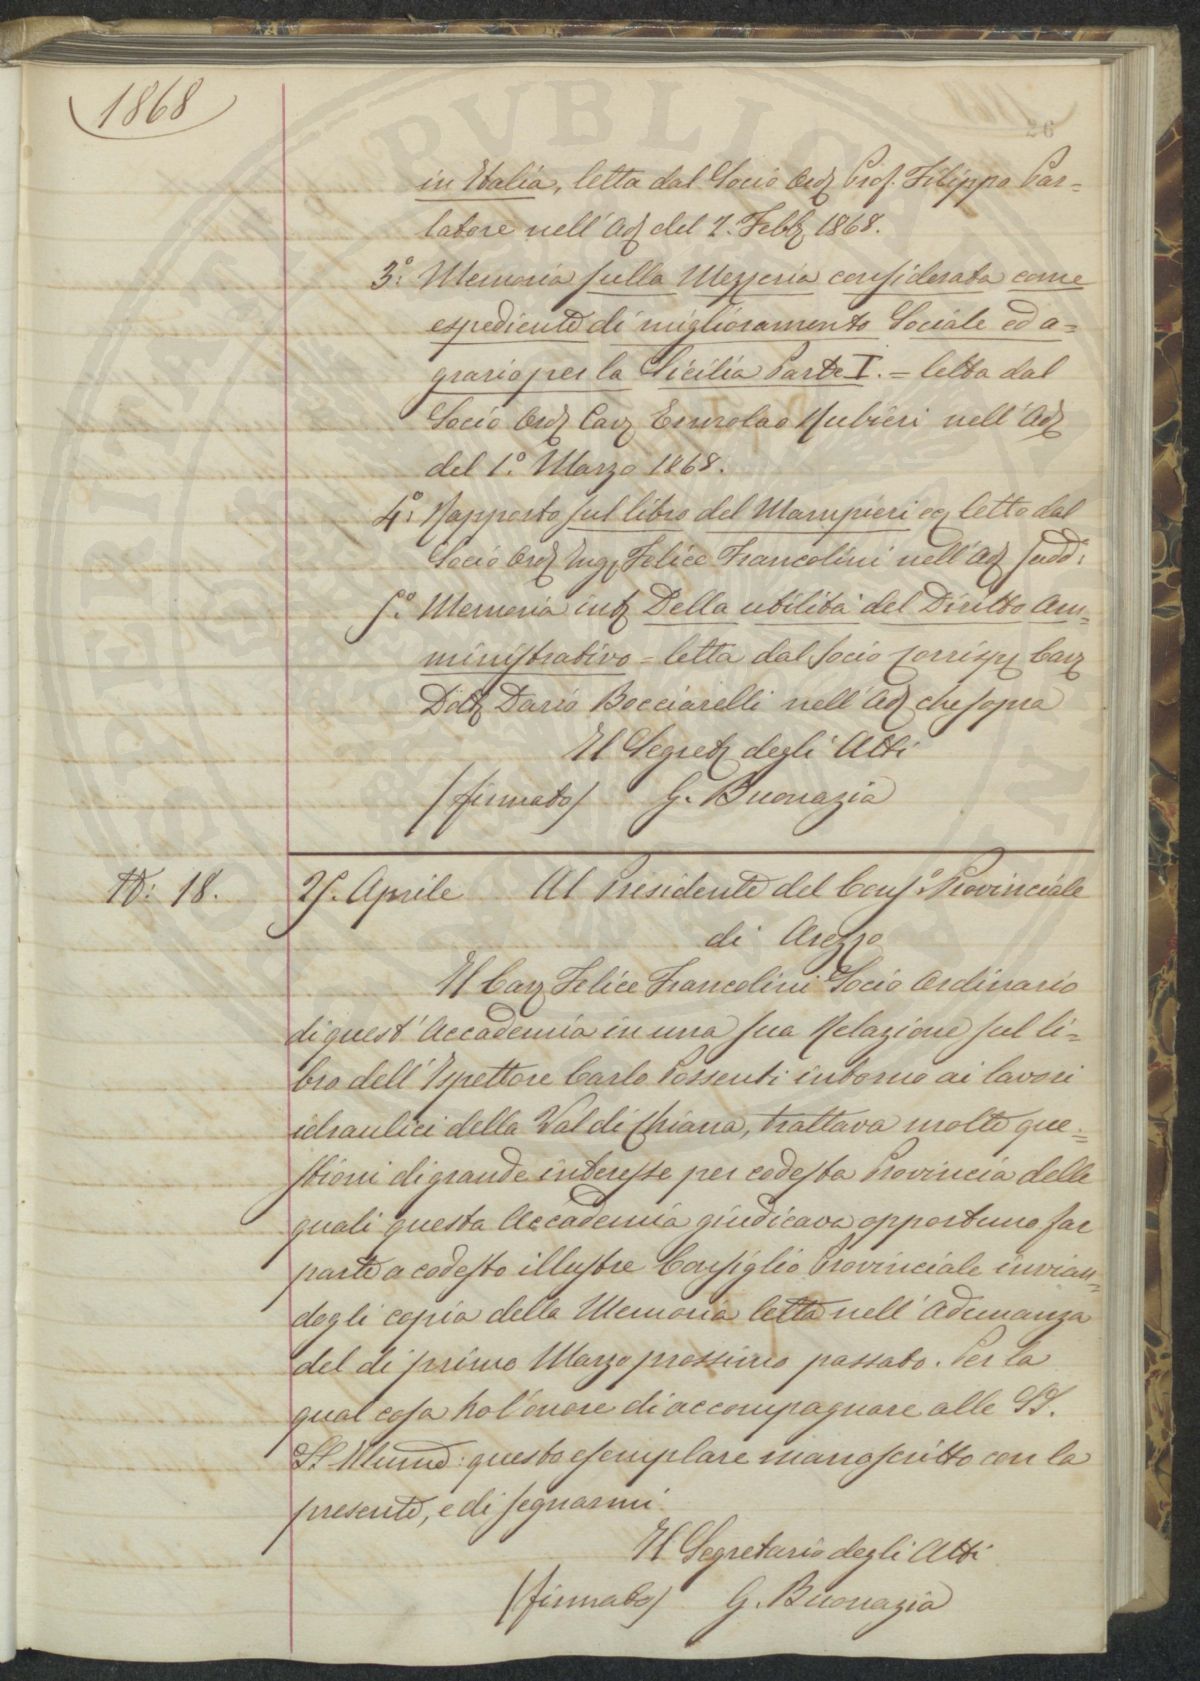 1868
in Italia, letta dal Socio Ord. Prof. Filippo Par=
latore nell'Ad. del 2. Febb. 1868.
3°: Memoria sulla Mezzeria considerata come
espediente di miglioramento Sociale ed a=
grario per la Sicilia Parte I. = letta dal
Socio Ord. Cav. Ermolao Rubieri nell'Ad.
del 1°. Marzo 1868.
4°: Rapporto sul libro del Manpieri ec. letto dal
Socio Ord. Ing. Felice Francolini nell'Ad. sudd:
5°: Memoria int. Della utilità del Diritto Am=
ministrativo = letta dal socio corrisp. Cav.
Dott. Dario Bocciarelli nell'Ad. che sopra
Il Segret. degli Atti
(firmato) G. Buonazia
N: 18. 25. Aprile Al Presidente del Cons°. Provinciale
di Arezzo
Il Cav. Felice Francolini Socio Ordinario
di quest'Accademia in una sua Relazione sul li=
bro dell'Ispettore Carlo Possenti intorno ai lavori
idraulici della Val di Chiana, trattava molte que=
stioni di grande interesse per codesta Provincia delle
quali questa Accademia giudicava opportuno far
parte a codesto illustre Consiglio Provinciale invian=
dogli copia della Memoria letta nell'Adunanza
del di primo Marzo prossimo passato. Per la
qual cosa ho l'onore di accompagnare alle SS.
LL. Illume: questo esemplare manoscritto con la
presente, e di segnarmi
Il Segretario degli Atti
(firmato) G. Buonazia